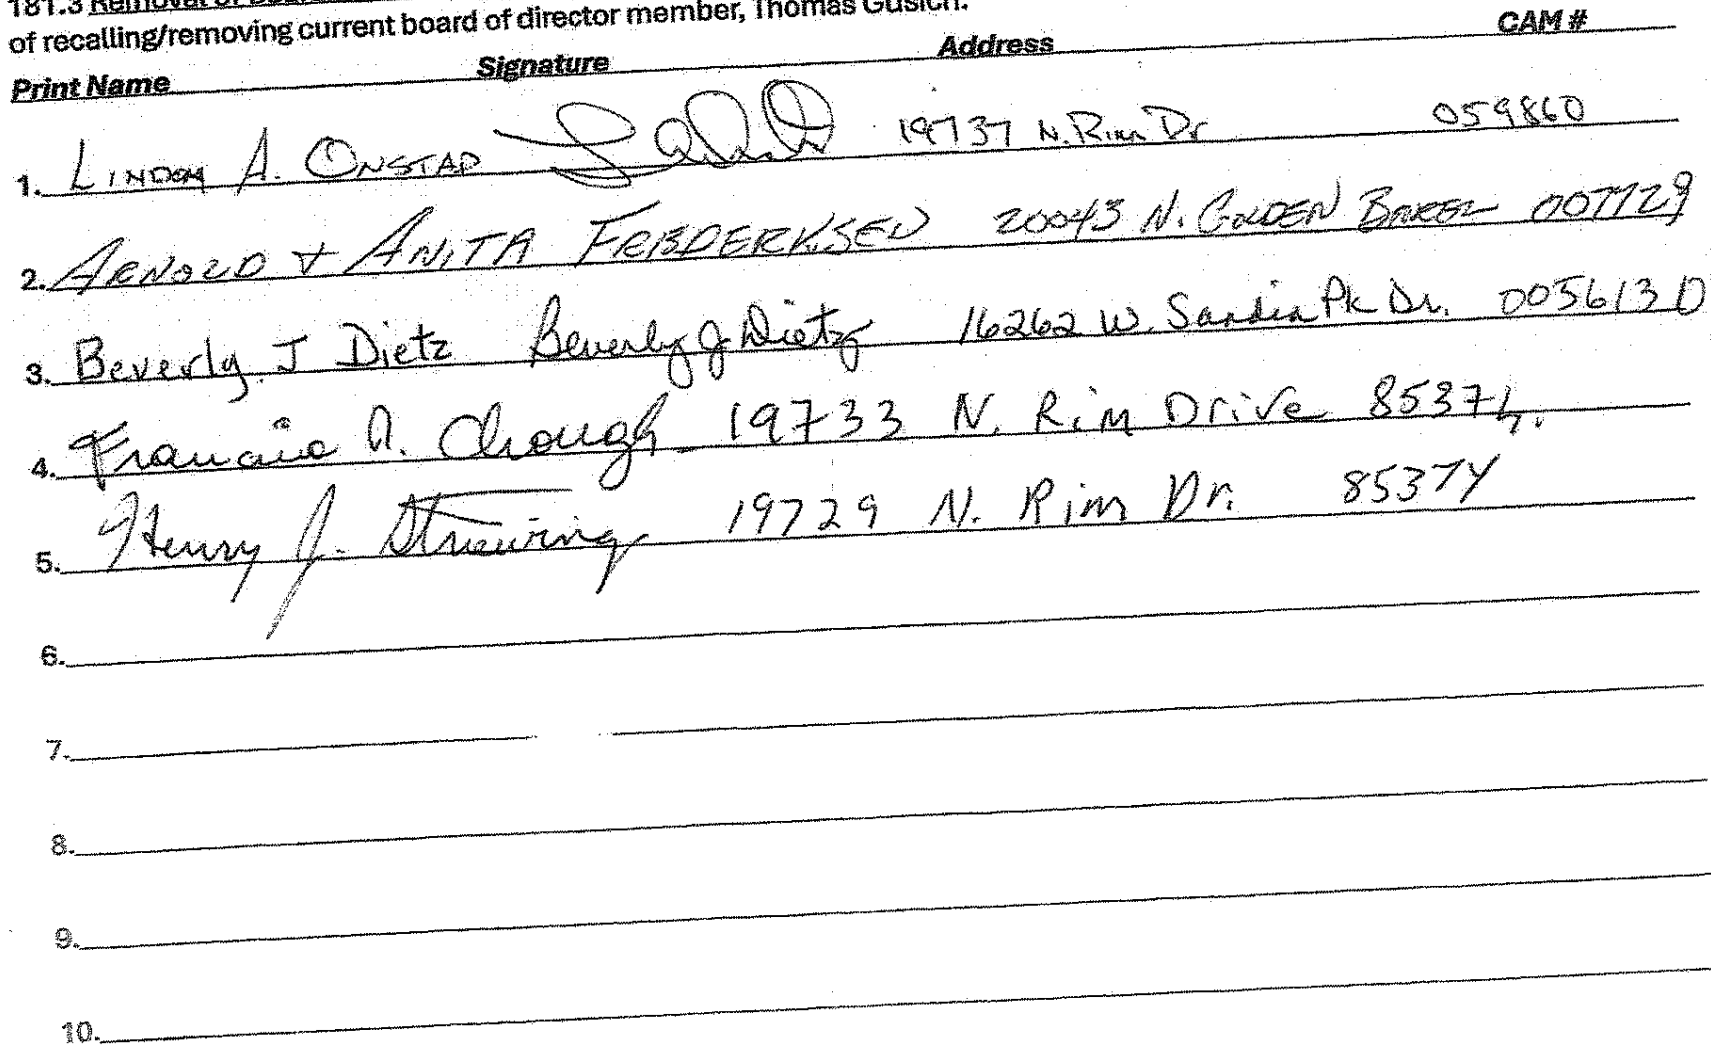 181.3 Removal of
of recalling/removing current board of director member, Thomas Gusich.
Print Name Signature Address CAM #
1. LINDA A. ONSTAD 19737 N. Rim Dr 059860
2. ARNOLD & ANITA FRIDDERKSEN 20043 N. GOLDEN BAREL 007729
3. Beverly J Dietz Beverly J Dietz 16262 W. Sandia Pk Dr. 005613 0
4. A. Chough 19733 N. Rim Drive 85374.
5. Henry J. Struewing 19729 N. Rim Dr. 85374
6.
7.
8.
9.
10.